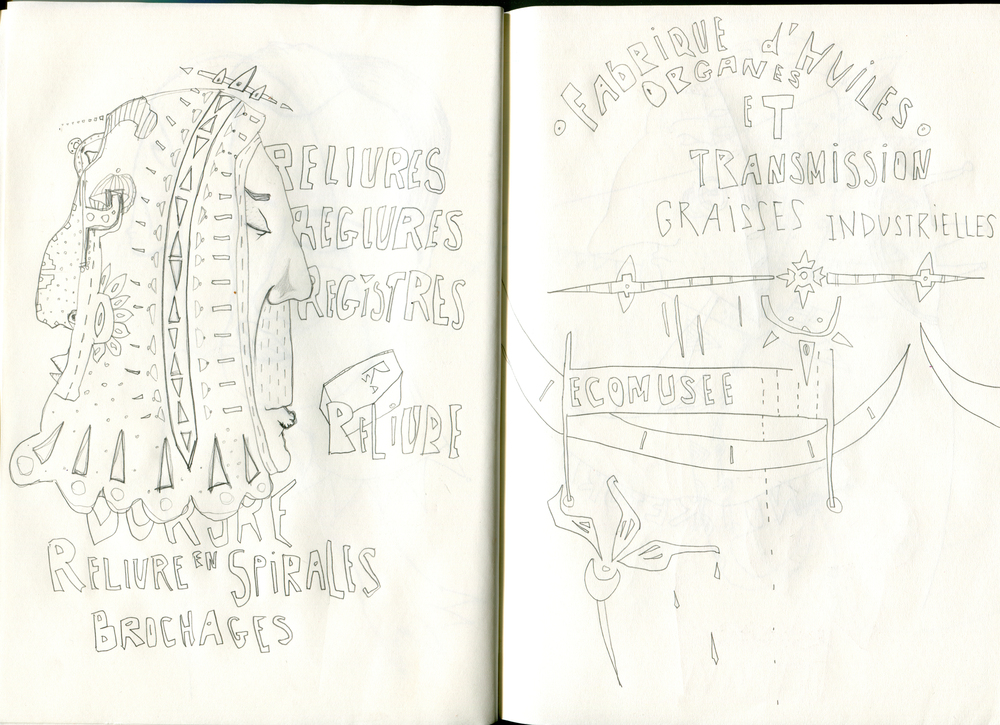 RELIURES
REGLURES
REGISTRES
RELIURE
DORURE
RELIURE EN SPIRALES
BROCHAGES
FABRIQUE d'HUILES
ORGANES
ET
TRANSMISSION
GRAISSES INDUSTRIELLES
ECOMUSEE